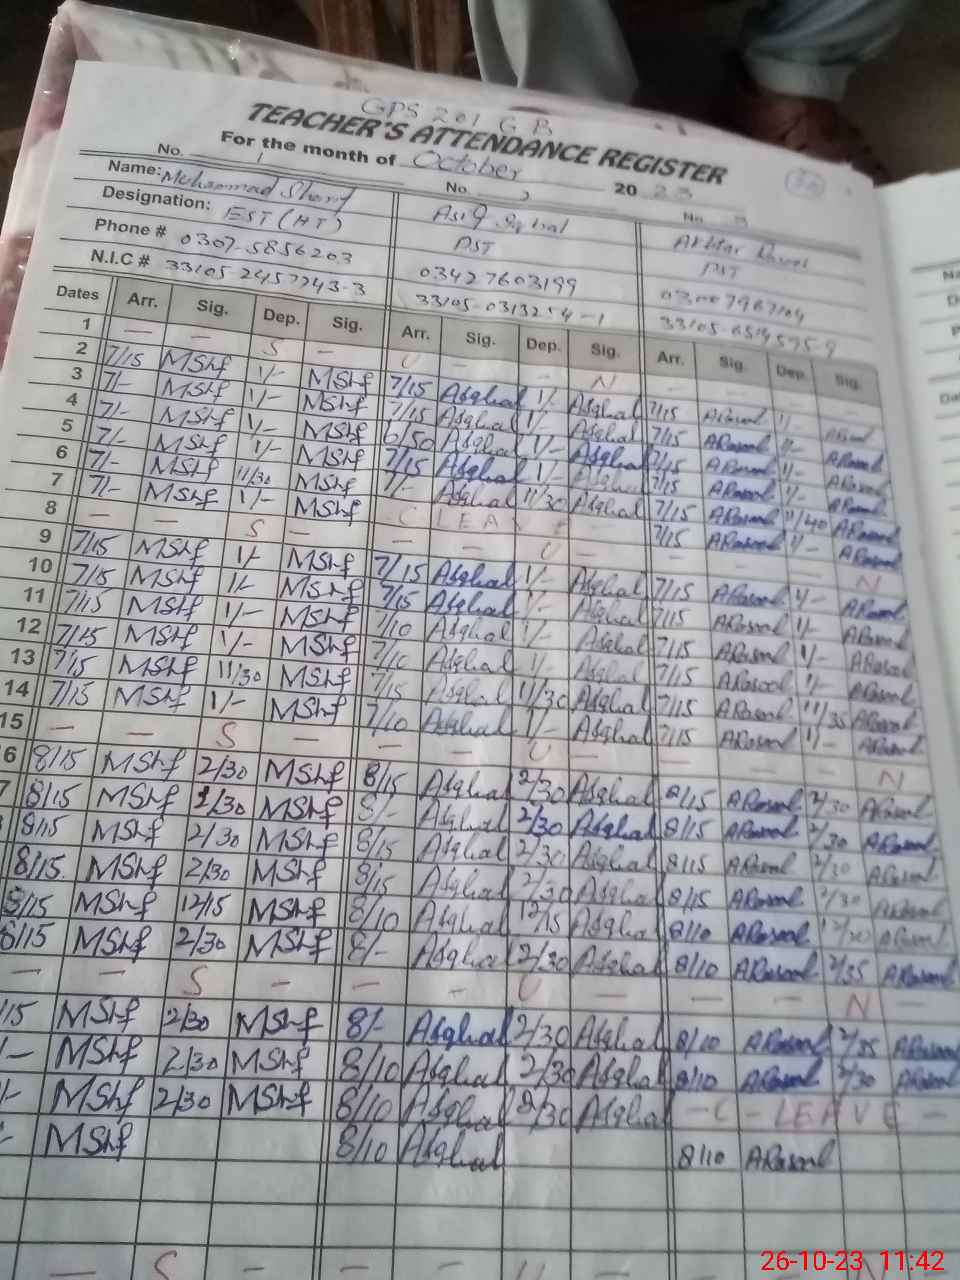 GPS 201 GB
TEACHER'S ATTENDANCE REGISTER
For the month of October 2023
No. 1 No. No. 3
Name: Muhammad Sharif Asif Iqbal Akhtar Rasool
Designation: EST (HT) PST PST
Phone # 0307-5856203 03427603199
N.I.C # 33105-2457743-3 33105-0313254-1
Dates Arr. Sig. Dep. Sig. Arr. Sig. Dep. Sig. Arr. Sig. Dep. Sig.
1 — — S — U — — N — — —
2 7/15 MShf 1/- MShf 7/15 Aiqbal 1/- Aiqbal 7/15 ARasool 1/- ARasool
3 7/- MShf 1/- MShf 7/15 Aiqbal 1/- Aiqbal 7/15 ARasool 1/- ARasool
4 7/- MShf 1/- MShf 6/50 Aiqbal 1/- Aiqbal 7/15 ARasool 1/- ARasool
5 7/- MShf 1/- MShf 7/15 Aiqbal 1/- Aiqbal 7/15 ARasool 1/- ARasool
6 7/- MShf 11/30 MShf 7/- Aiqbal 11/30 Aiqbal 7/15 ARasool 11/40 ARasool
7 7/- MShf 1/- MShf - C LEAVE - 7/15 ARasool 1/- ARasool
8 — — S — — — U — — — — N
9 7/15 MShf 1/- MShf 7/15 Aiqbal 1/- Aiqbal 7/15 ARasool 1/- ARasool
10 7/15 MShf 1/- MShf 7/15 Aiqbal 1/- Aiqbal 7/15 ARasool 1/- ARasool
11 7/15 MShf 1/- MShf 7/10 Aiqbal 1/- Aiqbal 7/15 ARasool 1/- ARasool
12 7/15 MShf 1/- MShf 7/10 Aiqbal 1/- Aiqbal 7/15 ARasool 1/- ARasool
13 7/15 MShf 11/30 MShf 7/15 Aiqbal 11/30 Aiqbal 7/15 ARasool 11/35 ARasool
14 7/15 MShf 1/- MShf 7/10 Aiqbal 1/- Aiqbal 7/15 ARasool 1/- ARasool
15 — — S — — — U — — — — N
6 8/15 MShf 2/30 MShf 8/15 Aiqbal 2/30 Aiqbal 8/15 ARasool 2/30 ARasool
7 8/15 MShf 2/30 MShf 8/- Aiqbal 2/30 Aiqbal 8/15 ARasool 2/30 ARasool
8/15 MShf 2/30 MShf 8/15 Aiqbal 2/30 Aiqbal 8/15 ARasool 2/30 ARasool
8/15 MShf 2/30 MShf 8/15 Aiqbal 2/30 Aiqbal 8/15 ARasool 2/30 ARasool
8/15 MShf 12/15 MShf 8/10 Aiqbal 12/15 Aiqbal 8/10 ARasool 12/20 ARasool
8/15 MShf 2/30 MShf 8/- Aiqbal 2/30 Aiqbal 8/10 ARasool 2/35 ARasool
— — S — — — U — — — N —
/15 MShf 2/30 MShf 8/- Aiqbal 2/30 Aiqbal 8/10 ARasool 2/35 ARasool
/- MShf 2/30 MShf 8/10 Aiqbal 2/30 Aiqbal 8/10 ARasool 2/30 ARasool
/- MShf 2/30 MShf 8/10 Aiqbal 2/30 Aiqbal - C - LEAVE -
/- MShf 8/10 Aiqbal 8/10 ARasool
— S — — — U — — — N
26-10-23 11:42